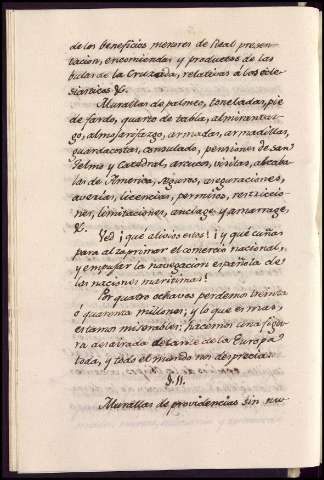 de los beneficios menores de Real presen-
tacion, encomiendas y productos de las
bulas de la Cruzada, relativas á los ecle-
siasticos &.
Murallas de palmeo, toneladas, pie
de fardo, quarto de tabla, almirantaz-
go, almojarifazgo, armadas, armadillas,
guardacostas, consulado, pensiones de San
Telmo y Catedral, arcos, visitas, alcaba
las de America, seguros, aseguraciones,
averias, licencias, permisos, restriccio-
nes, limitaciones, anclage, y amarrage,
&.
Ved ¡qué alivios estos! ¡y qué cuñas
para alzaprimar el comercio nacional,
y empujar la navegacion española de
las naciones maritimas!
Por quatro ochavos perdemos treinta
ó quarenta millones; y lo que es mas,
estamos miserables; hacemos una figu-
ra desairada delante de la Europa
toda, y todo el mundo nos desprecia.
§. 11.
Murallas de providencias sin nu-